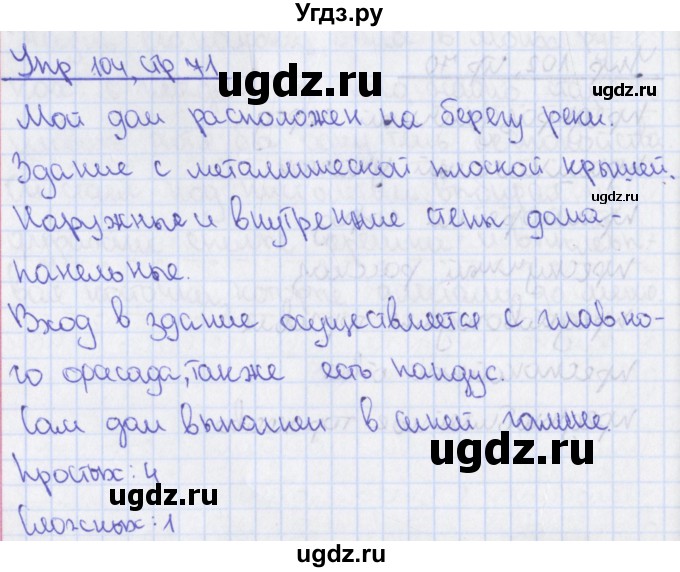 Угдз.ру
Упр 104, стр 71
ugdz.ru
ugdz.ru
Мой дом расположен на берегу реки.
Здание с металлической плоской крышей.
ugdz.ru
Наружные и внутренние стены дома-
панельные.
ugdz.ru
Вход в здание осуществляется с главно-
го фасада, также есть пандус.
Сам дом выполнен в синей гамме.
ugdz.ru
ugdz.ru
Простых: 4
Сложных: 1
ugdz.ru